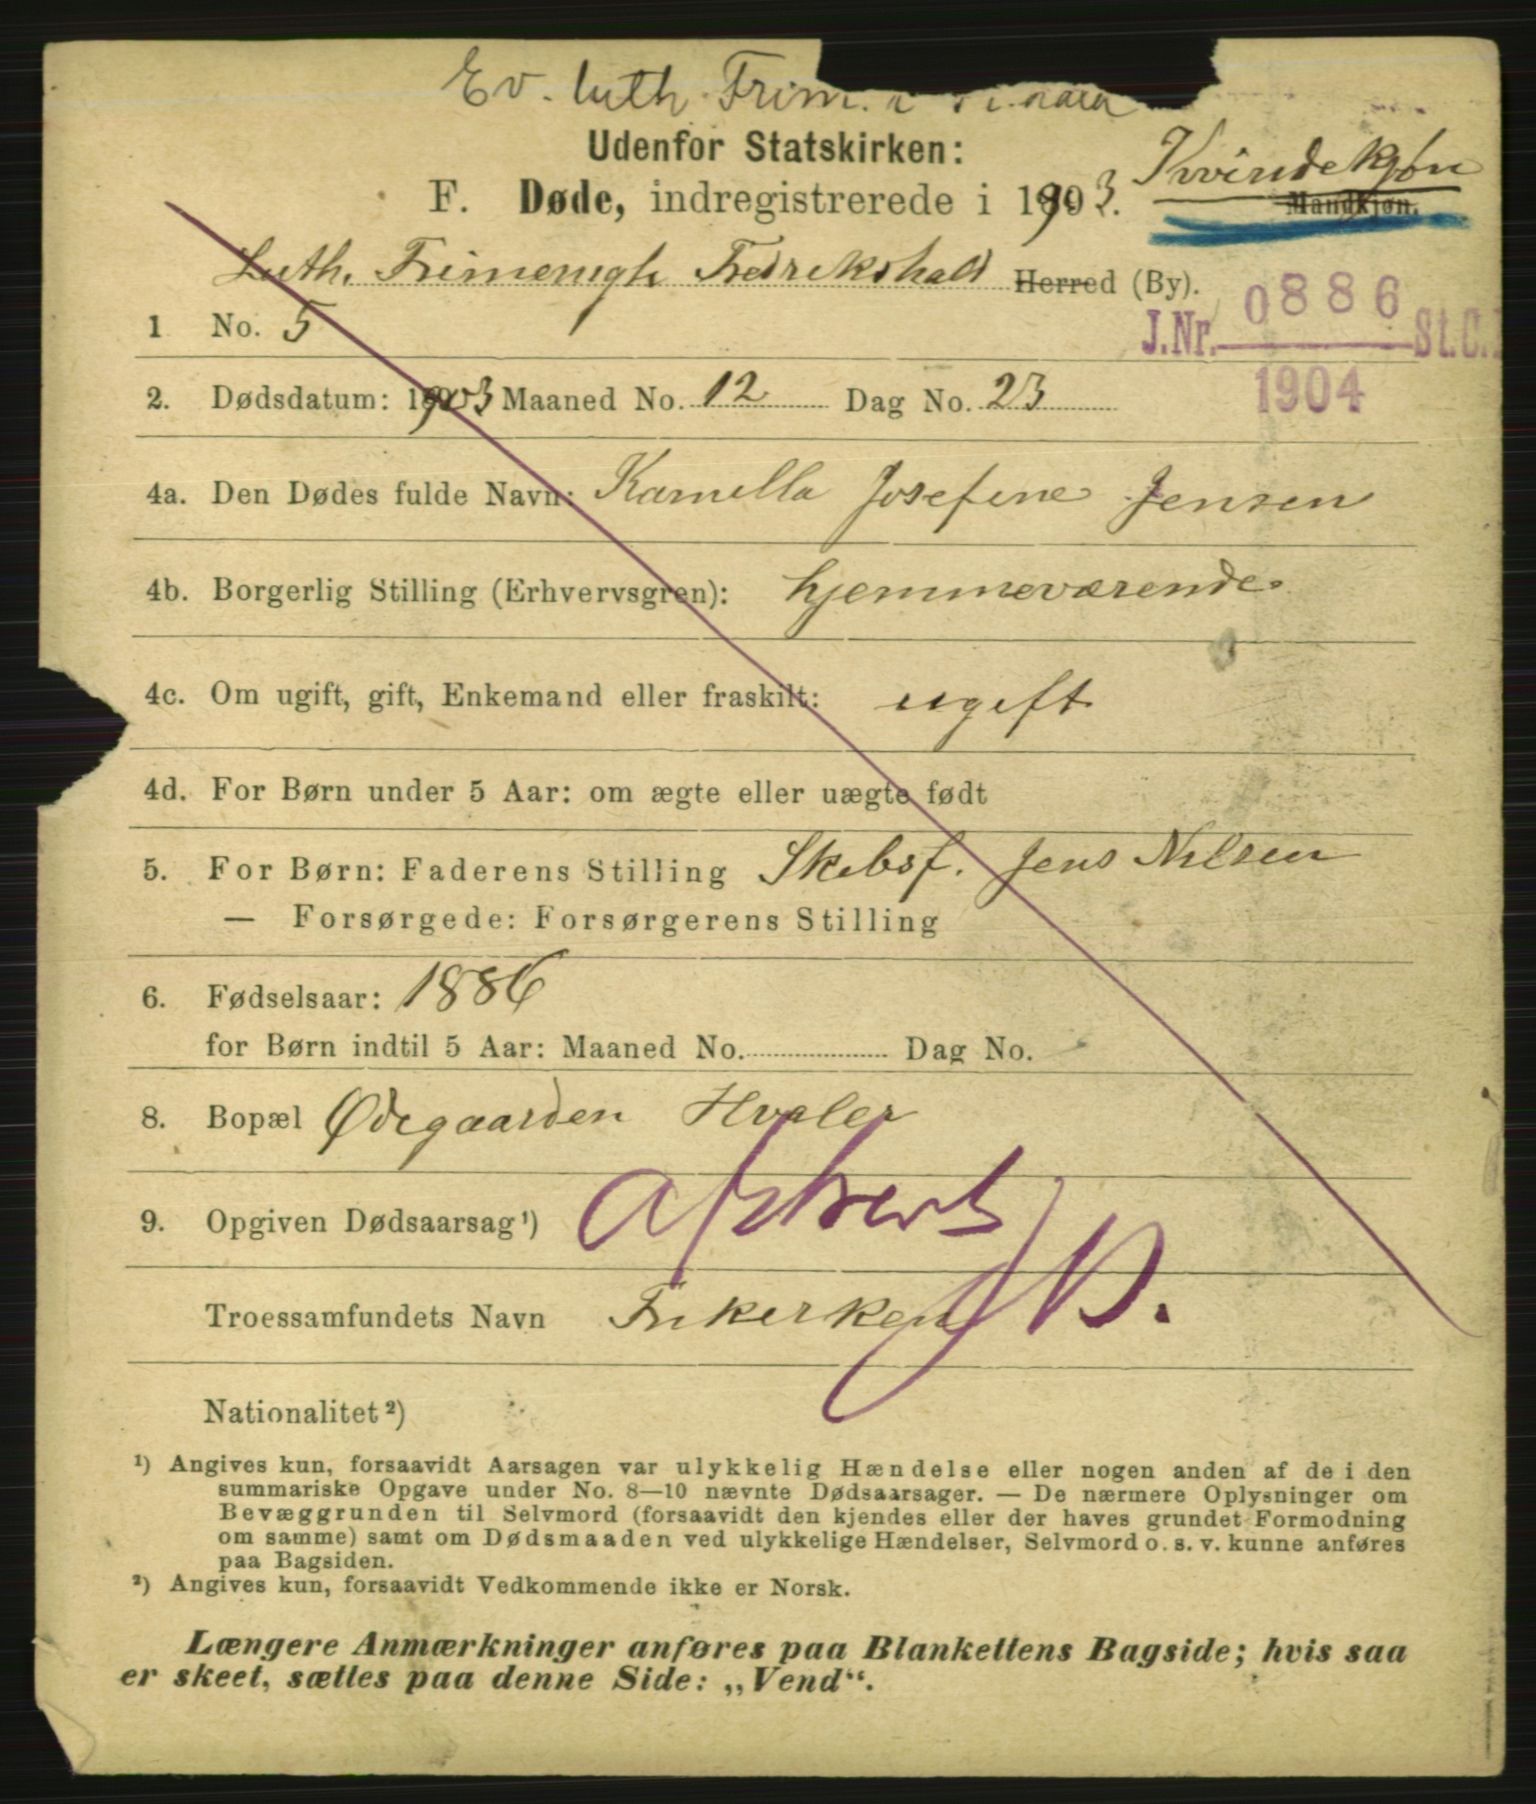 Ev. luth. Frim. i
Udenfor Statskirken:
F. Døde, indregistrerede i 1903.
Kvindekjøn
Mandkjøn.
Luth. Frimenigh Fredrikshald Herred (By).
J.Nr. 0886 St.C.
1904
1 No. 5
2. Dødsdatum: 1903 Maaned No. 12 Dag No. 23
4a. Den Dødes fulde Navn: Kamilla Josefine Jensen
4b. Borgerlig Stilling (Erhvervsgren): hjemmeværende
4c. Om ugift, gift, Enkemand eller fraskilt: ugift
4d. For Børn under 5 Aar: om ægte eller uægte født
5. For Børn: Faderens Stilling Skibsf. Jens Nilsen
— Forsørgede: Forsørgerens Stilling
6. Fødselsaar: 1886
for Børn indtil 5 Aar: Maaned No. Dag No.
8. Bopæl Ødegaarden Hvaler
9. Opgiven Dødsaarsag¹)
afskrevet
Troessamfundets Navn Frikerken
Nationalitet²)
¹) Angives kun, forsaavidt Aarsagen var ulykkelig Hændelse eller nogen anden af de i den
summariske Opgave under No. 8—10 nævnte Dødsaarsager. — De nærmere Oplysninger om
Bevæggrunden til Selvmord (forsaavidt den kjendes eller der haves grundet Formodning
om samme) samt om Dødsmaaden ved ulykkelige Hændelser, Selvmord o. s. v. kunne anføres
paa Bagsiden.
²) Angives kun, forsaavidt Vedkommende ikke er Norsk.
Længere Anmærkninger anføres paa Blankettens Bagside; hvis saa
er skeet, sættes paa denne Side: „Vend“.